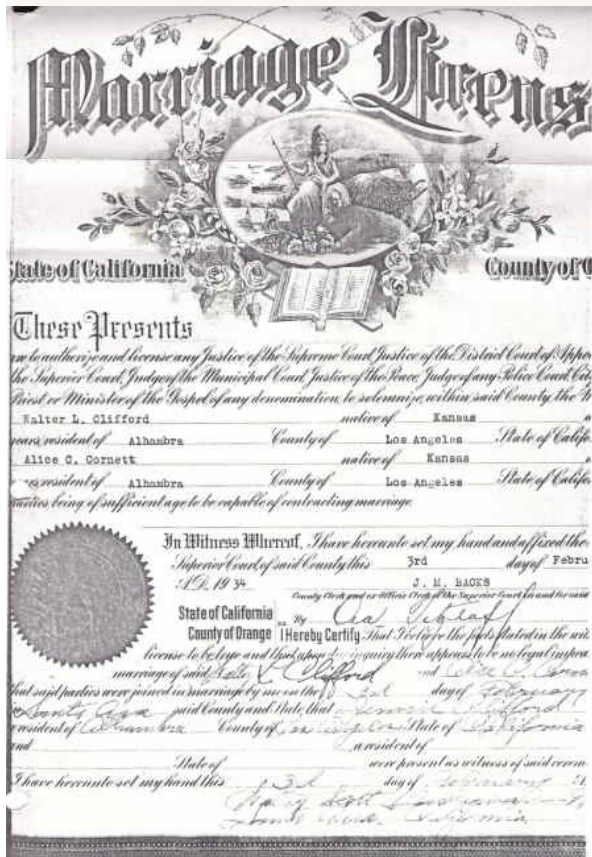 Marriage Licens
State of California County of O
These Presents
are to authorize and license any Justice of the Supreme Court, Justice of the District Court of Appea
the Superior Court, Judge of the Municipal Court, Justice of the Peace, Judge of any Police Court, City
Priest or Minister of the Gospel of any denomination, to solemnize within said County, the M
Walter L. Clifford native of Kansas
years, resident of Alhambra County of Los Angeles State of Califo
Alice C. Cornett native of Kansas
years, resident of Alhambra County of Los Angeles State of Califo
parties being of sufficient age to be capable of contracting marriage.
In Witness Whereof, I have hereunto set my hand and affixed the
Superior Court of said County this 3rd day of Febru
A.D. 1934 J. M. BACKS
County Clerk and ex-officio Clerk of the Superior Court in and for said
State of California
County of Orange
ss. By
I Hereby Certify, That I believe the facts stated in the wit
license to be true and that upon due inquiry there appears to be no legal imped
marriage of said Walter L. Clifford and Alice C.
that said parties were joined in marriage by me on the 3rd day of February
Santa Ana said County and State, that Clifford
a resident of Alhambra County of Los Angeles State of California
and a resident of
State of were present as witness of said cerem
I have hereunto set my hand this 3d day of February A.
Scott
California